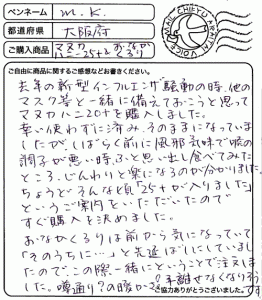 ペンネーム M.K.
都道府県 大阪府
ご購入商品 マヌカハニー25+とおなかくるり
ご自由に商品に関するご感想などお書きください。
去年の新型インフルエンザ騒動の時、他の
マスク等と一緒に備えておこうと思って
マヌカハニー20+を購入しました。
幸い使わずに済み、そのままになっていま
したが、しばらく前に風邪気味で喉の
調子が悪い時、ふと思い出し食べてみた
ところ、じんわりと楽になるのが分かりました。
ちょうどそんな頃"25+が入りました"
というご案内をいただいたので
すぐ購入を決めました。
おなかくるりは前から気になっていて
「そのうちに…」と先延ばしにしていまし
たので、この際一緒にということで注文しま
した。噂通り?の豚か 手離せなくなりそうです
ご協力ありがとうございました。
MAIL CHIEYU ARATAI VOICE